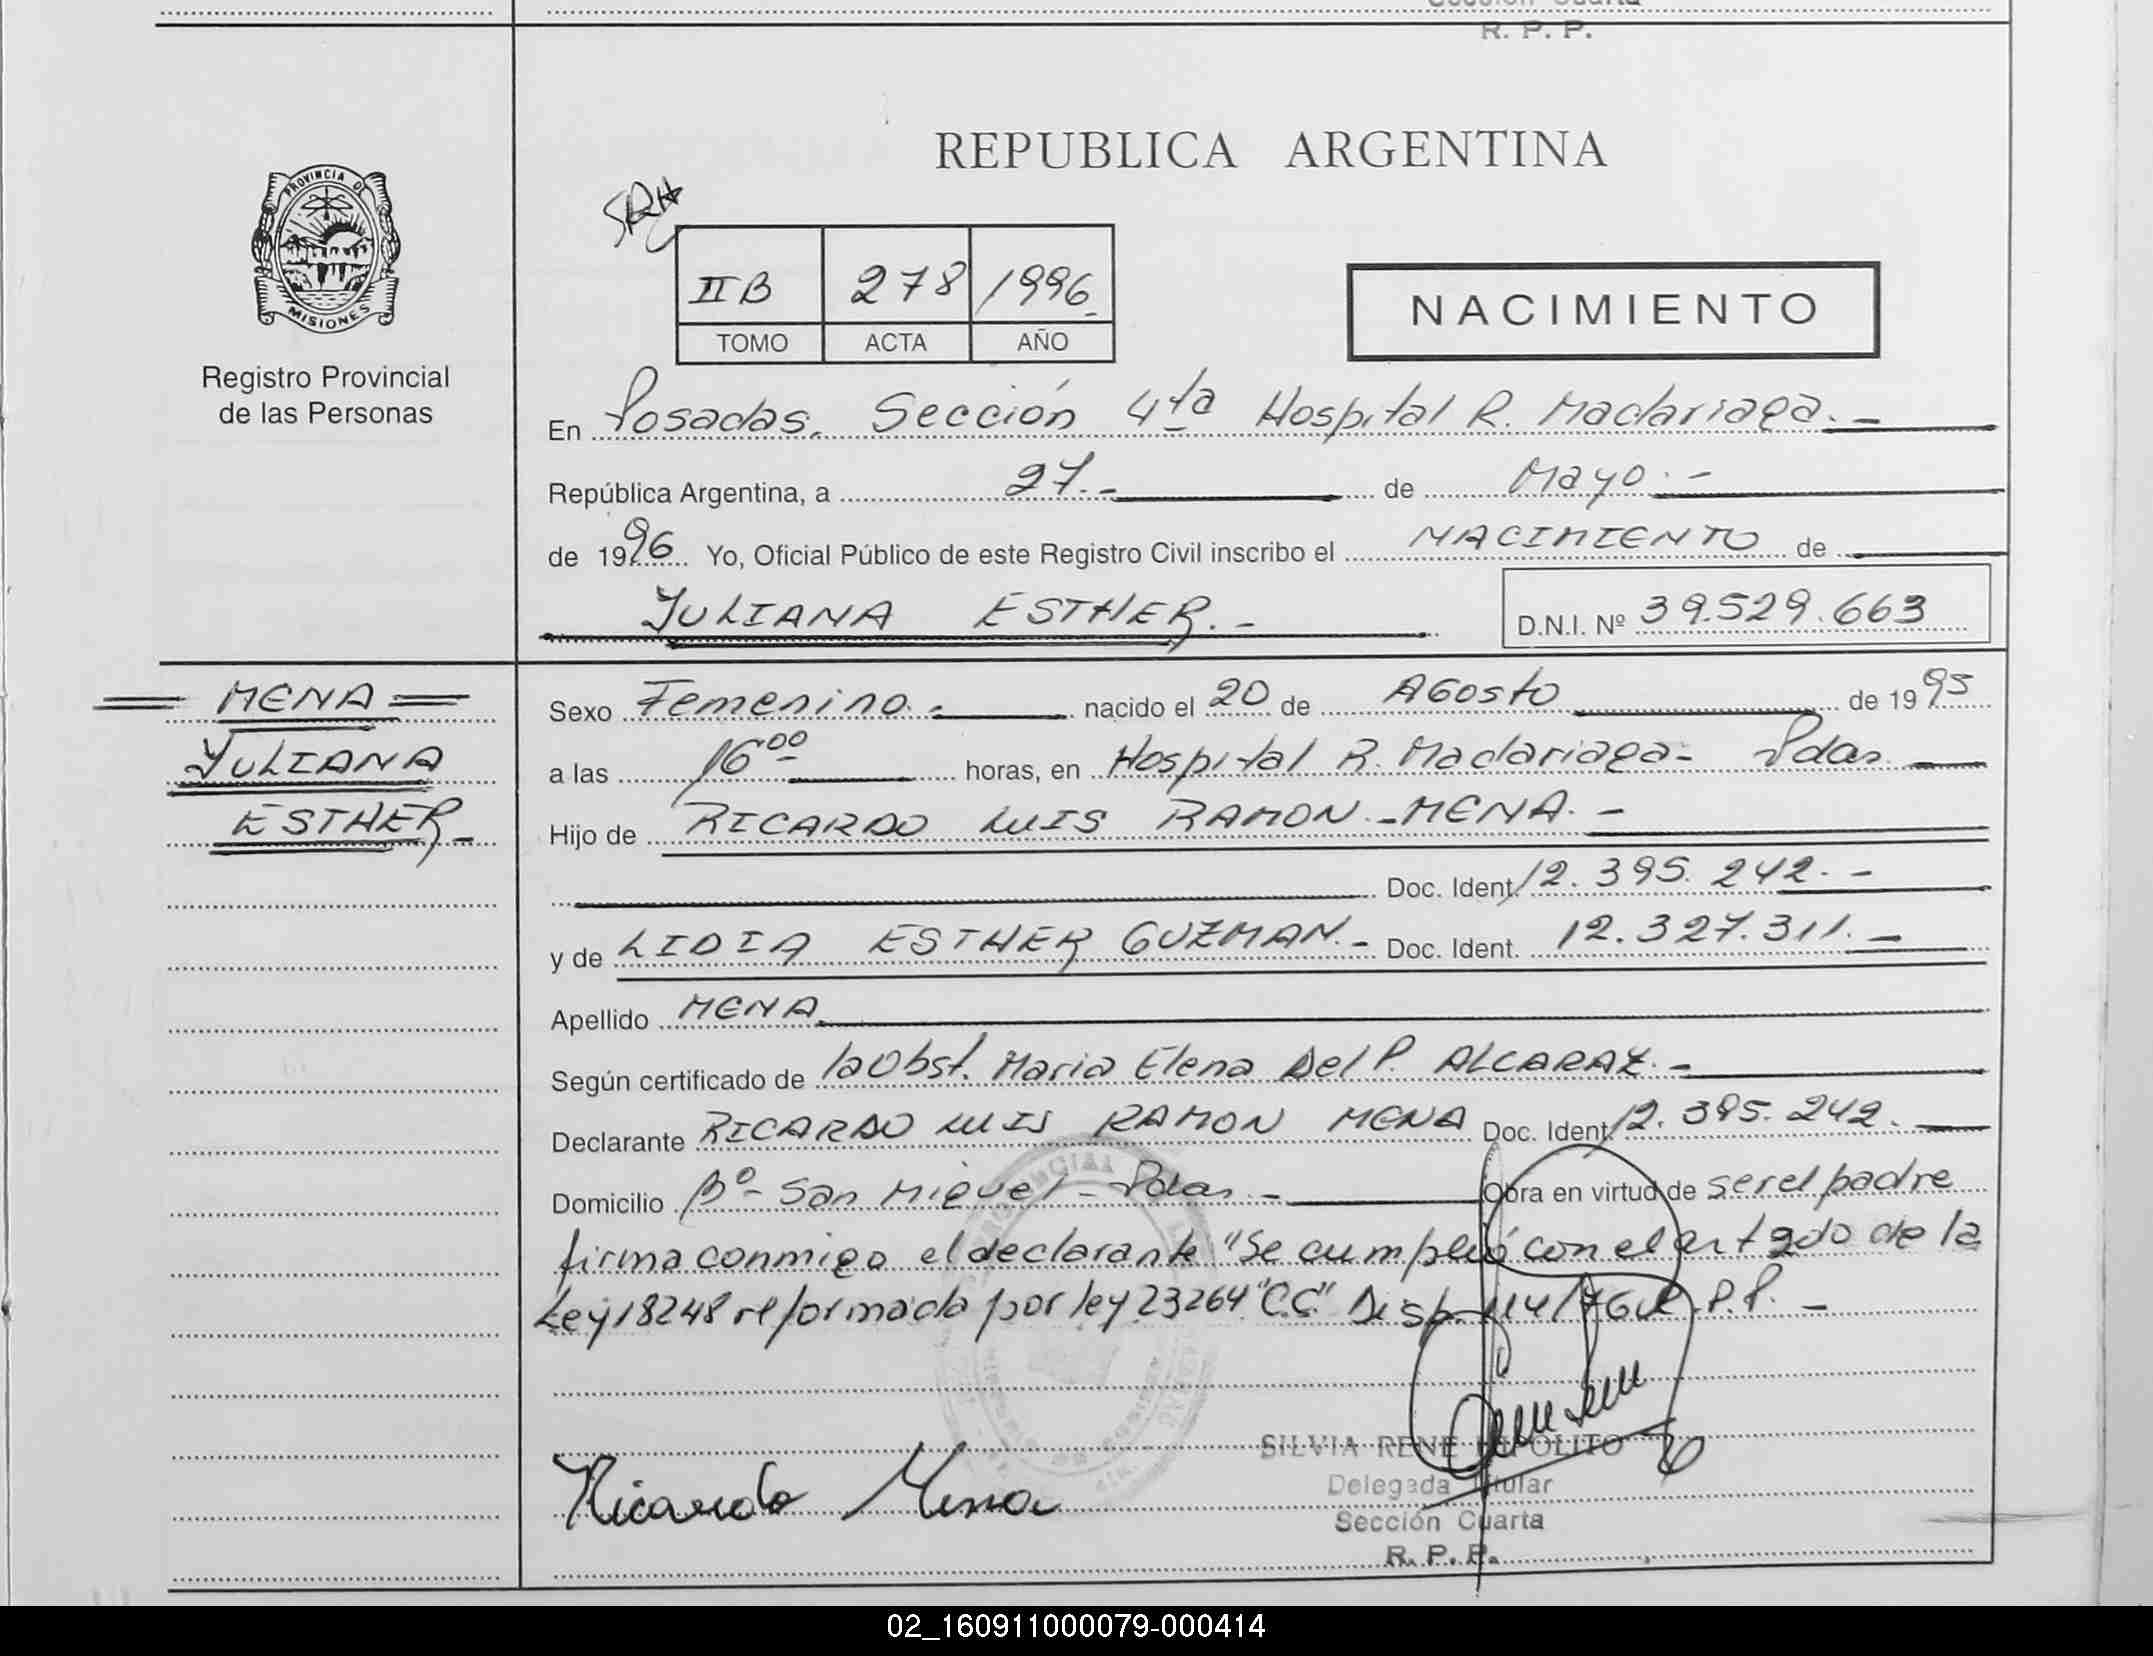 R. P. P.
REPUBLICA ARGENTINA
PROVINCIA DE
MISIONES
Registro Provincial
de las Personas
II B 278 1996
TOMO ACTA AÑO
NACIMIENTO
En Posadas. Sección 4ta Hospital R. Madariaga.-
República Argentina, a 27.- de Mayo.-
de 1996 Yo, Oficial Público de este Registro Civil inscribo el NACIMIENTO de
JULIANA ESTHER.-
D.N.I. Nº 39.529.663
MENA
JULIANA
ESTHER-
Sexo Femenino.- nacido el 20 de Agosto de 1995
a las 16 00 horas, en Hospital R. Madariaga- Pdas.
Hijo de RICARDO LUIS RAMON.-MENA.-
Doc. Ident. 12.395.242.-
y de LIDIA ESTHER GUZMAN.- Doc. Ident. 12.327.311.-
Apellido MENA
Según certificado de la Obst. Maria Elena Del P. ALCARAZ.-
Declarante RICARDO LUIS RAMON MENA Doc. Ident. 12.395.242.
Domicilio Bº- San Miguel - Pdas.- Obra en virtud de ser el padre
firma conmigo el declarante "Se cumplió con el art 2do de la
Ley 18248 reformada por ley 23264 "C.C." Disp. 114/76 R.P.P.-
Ricardo Mena
SILVIA RENE HIPOLITO
Delegada Titular
Sección Cuarta
R. P. P.
02_160911000079-000414